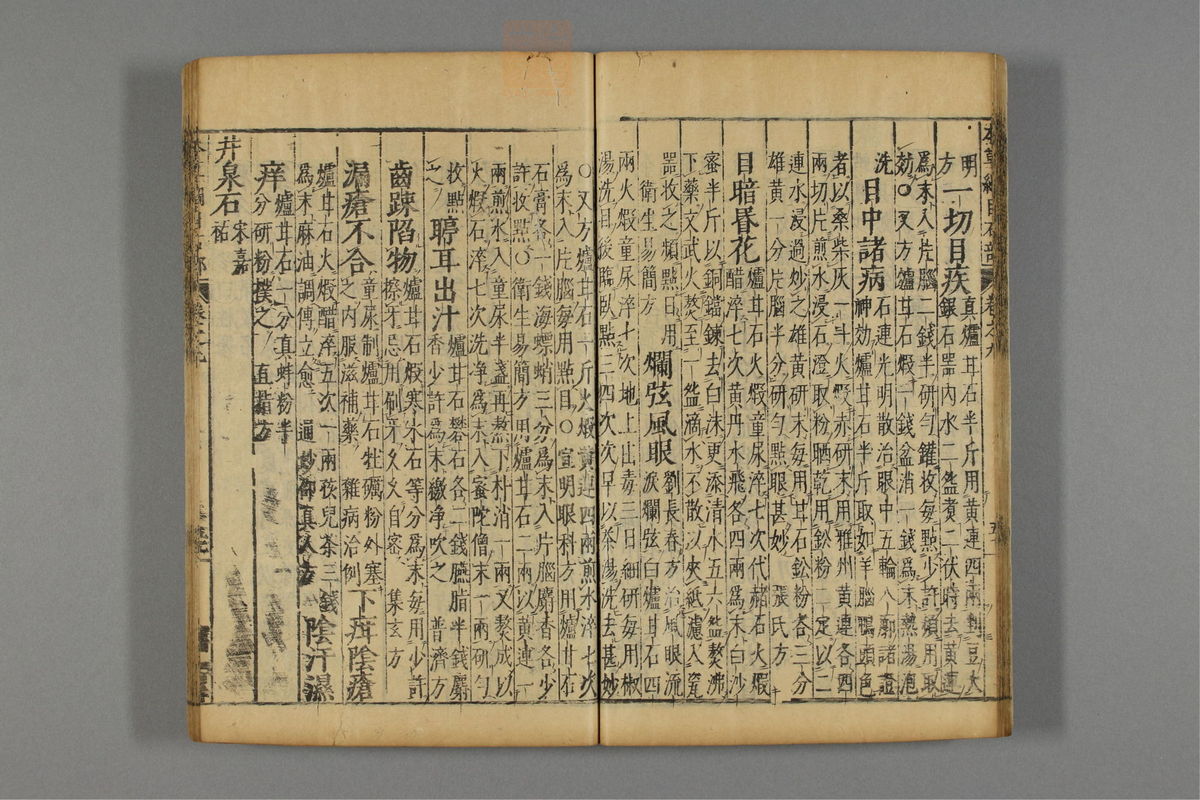 明
方一切目疾真爐甘石半斤用黃連四兩剉豆大
銀石器內水二盌煑二伏時去黃連
爲末入片腦二錢半研勻罐收每點少許頻用取
効○又方爐甘石煆一錢盆消一錢爲末熱湯泡
洗目中諸病石連光明散治眼中五輪八廓諸證
神効爐甘石半斤取如羊腦鴨頭色
者以桑柴灰一斗火煆赤研末用雅州黃連各四
兩切片煎水浸石澄取粉晒乾用鉛粉二定以二
連水浸過炒之雄黃研末每用甘石鉛粉各三分
雄黃一分片腦半分研勻點眼甚妙 張氏方
目暗昏花爐甘石火煆童尿淬七次代赭石火煆
醋淬七次黃丹水飛各四兩爲末白沙
蜜半斤以銅鐺鍊去白沫更添清水五六盌熬沸
下藥文武火熬至一盌滴水不散以夾紙濾入瓷
器收之頻點日用
衛生易簡方 爛弦風眼劉長春方治風眼流
淚爛弦白爐甘石四
兩火煆童尿淬七次地上出毒三日細研每用椒
湯洗目後臨臥點三四次次早以茶湯洗去甚妙
○又方爐甘石一斤火煆黃連四兩煎水淬七次
爲末入片腦每用點目○宣明眼科方用爐甘石
石膏各一錢海螵蛸三分爲末入片腦麝香各少
許收點○衛生易簡方用爐甘石二兩以黃連一
兩煎水入童尿半盞再熬下朴消一兩又熬成以
火煆石淬七次洗淨爲末入蜜陀僧末一兩研勻
收點
之聤耳出汁爐甘石礬石各二錢臙脂半錢麝
香少許爲末繳淨吹之 普濟方
齒踈陷物爐甘石煆寒水石等分爲末每用少許
擦牙忌用刷牙久久自密 集玄方
漏瘡不合童尿制爐甘石牡礪粉外塞
之內服滋補藥 雜病治例 下疳陰瘡
爐甘石火煆醋淬五次一兩孩兒茶三錢
爲末麻油調傅立愈 通妙邵眞人方 陰汗濕
痒爐甘石一分真蚌粉半
分研粉撲之 直指方
井泉石宋嘉
祐